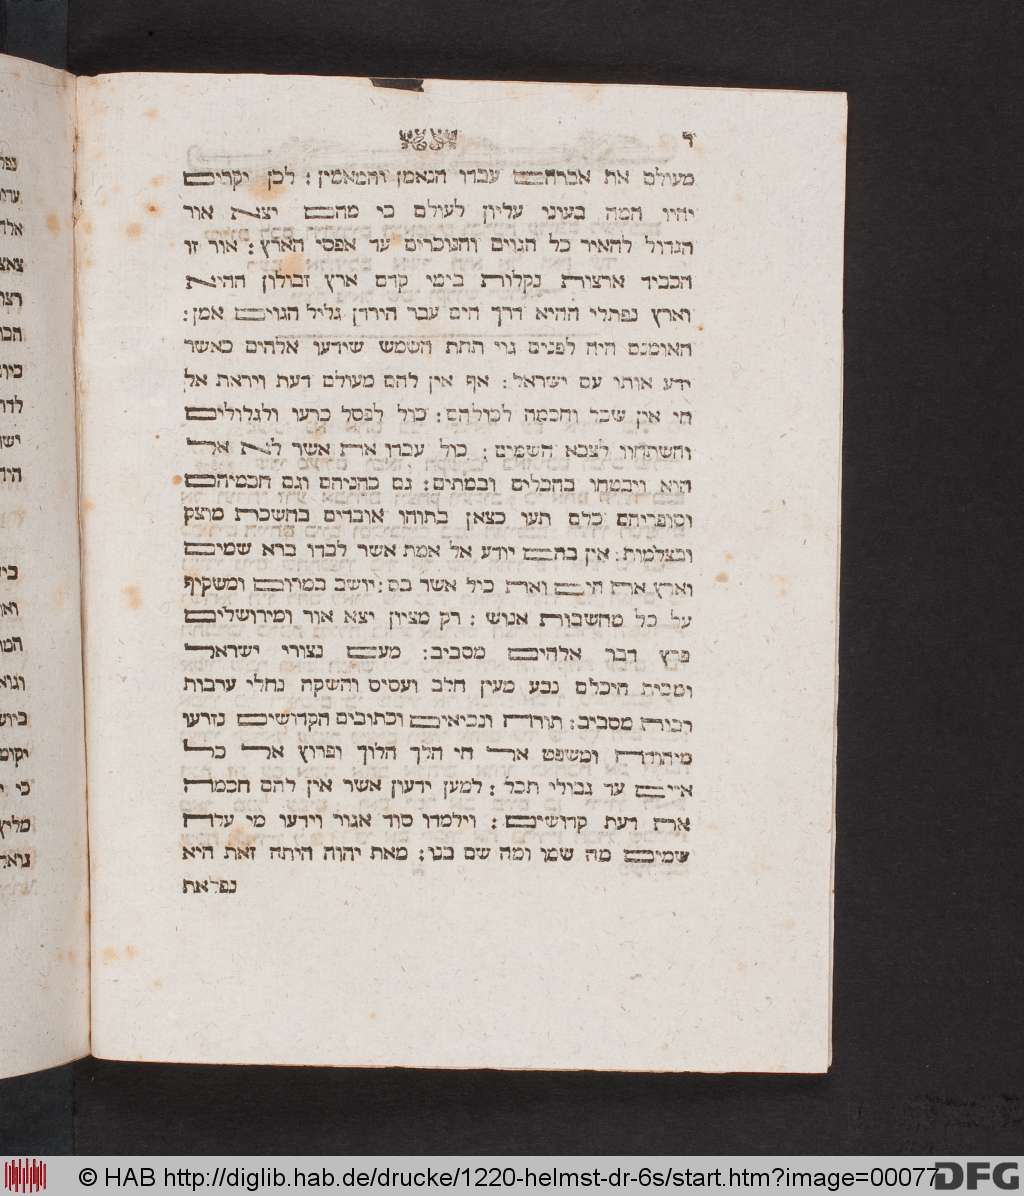 ד
מעולם את אברהם עבדו הנאמן והמאמין : לכן יקרים
יהיו המה בעיני עליון לעולם כי מהם יצא אור
הגדול להאיר כל הגוים והנוכרים עד אפסי הארץ : אור זו
הכביד ארצות נקלות בימי קדם ארץ זבולון ההיא
וארץ נפתלי ההיא דרך הים עבר הירדן גליל הגוים אמן :
האומנם היה לפנים גוי תחת השמש שידעו אלהים כאשר
ידע אותו עם ישראל : אף אין להם מעולם דעת ויראת אל
חי אין שכר וחכמה לכולהם : כול לפסל כרעו ולגלולים
והשתחוו לצבא השמים : כול עבדו את אשר לא אל
הוא ויבטחו בהבלים ובמתים : גם כהניהם וגם חכמיהם
וסופריהם כלם תעו כצאן בתוהו אובדים בחשכת מוצק
ובצלמות : אין בהם יודע אל אמת אשר לבדו ברא שמים
וארץ את הים ואת כול אשר בם : יושב במרום ומשקיף
על כל מחשבות אנוש : רק מציון יצא אור ומירושלים
פרץ דבר אלהים מסביב : מעם נצורי ישראל
ומבית היכלם נבע מעין חלב ועסיס והשקה נחלי ערבות
רבות מסביב : תורה ונביאים וכתובים הקדושים נזרעו
מיהודה ומשפט אל חי הלך הלוך ופרוץ אל כל
איים עד גבולי תבל : למען ידעון אשר אין להם חכמה
את דעת קדושים : וילמדו סוד אגור וידעו מי עלה
שמים מה שמו ומה שם בנו : מאת יהוה היתה זאת היא
נפלאת
© HAB http://diglib.hab.de/drucke/1220-helmst-dr-6s/start.htm?image=00077
DFG